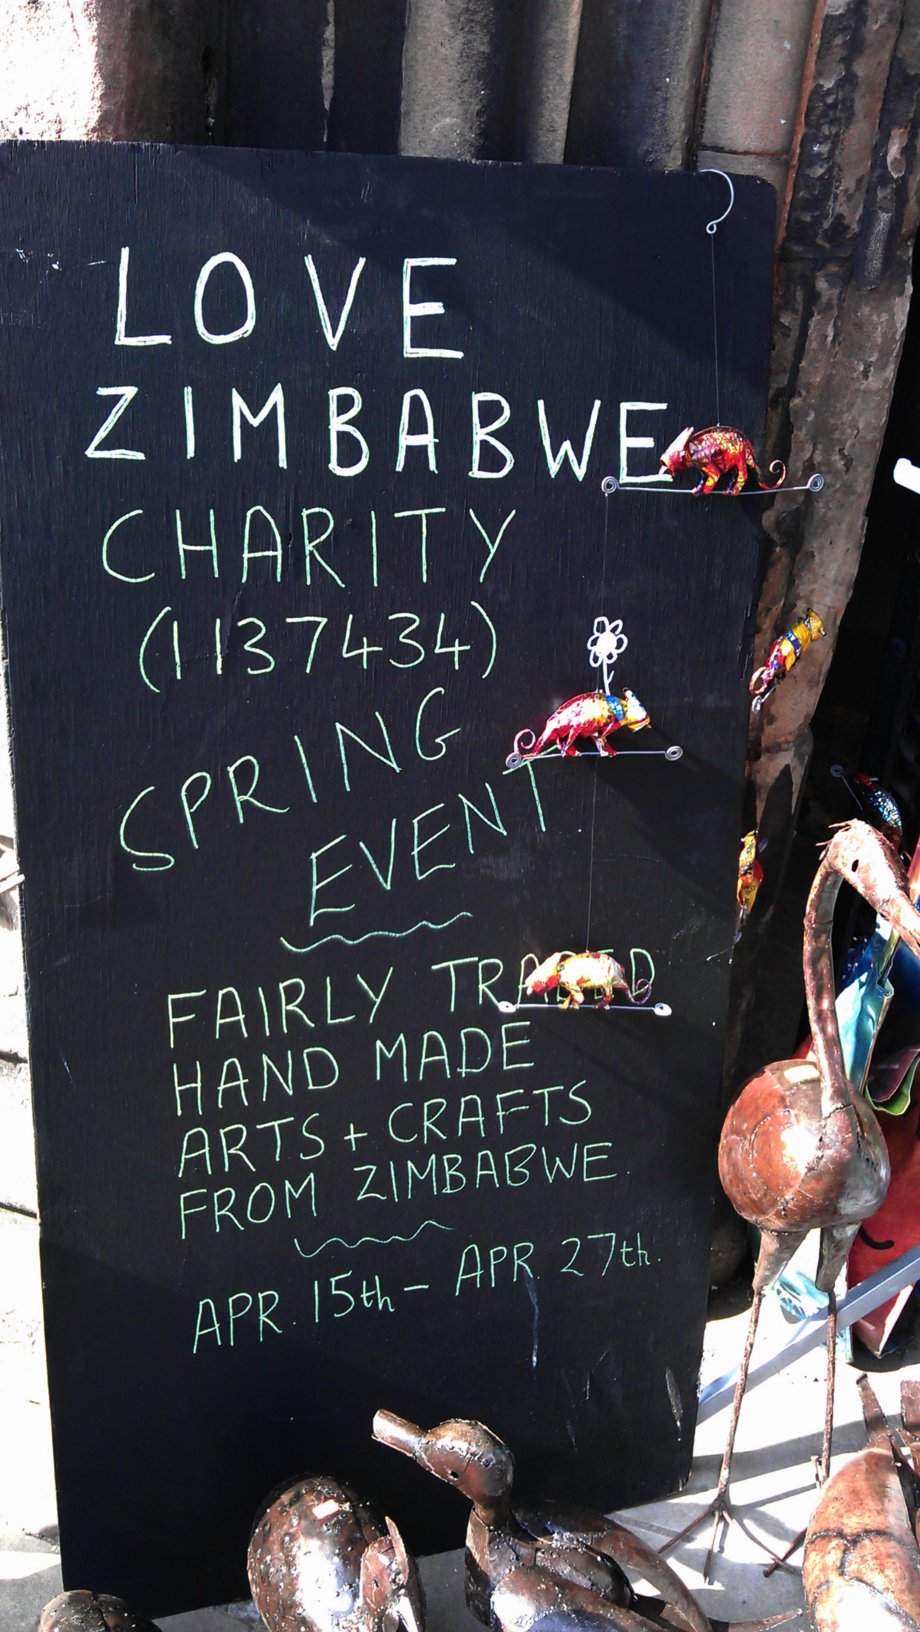 LOVE
ZIMBABWE
CHARITY
(1137434)
SPRING
EVENT
FAIRLY TRADED
HAND MADE
ARTS + CRAFTS
FROM ZIMBABWE.
APR. 15th - APR. 27th.